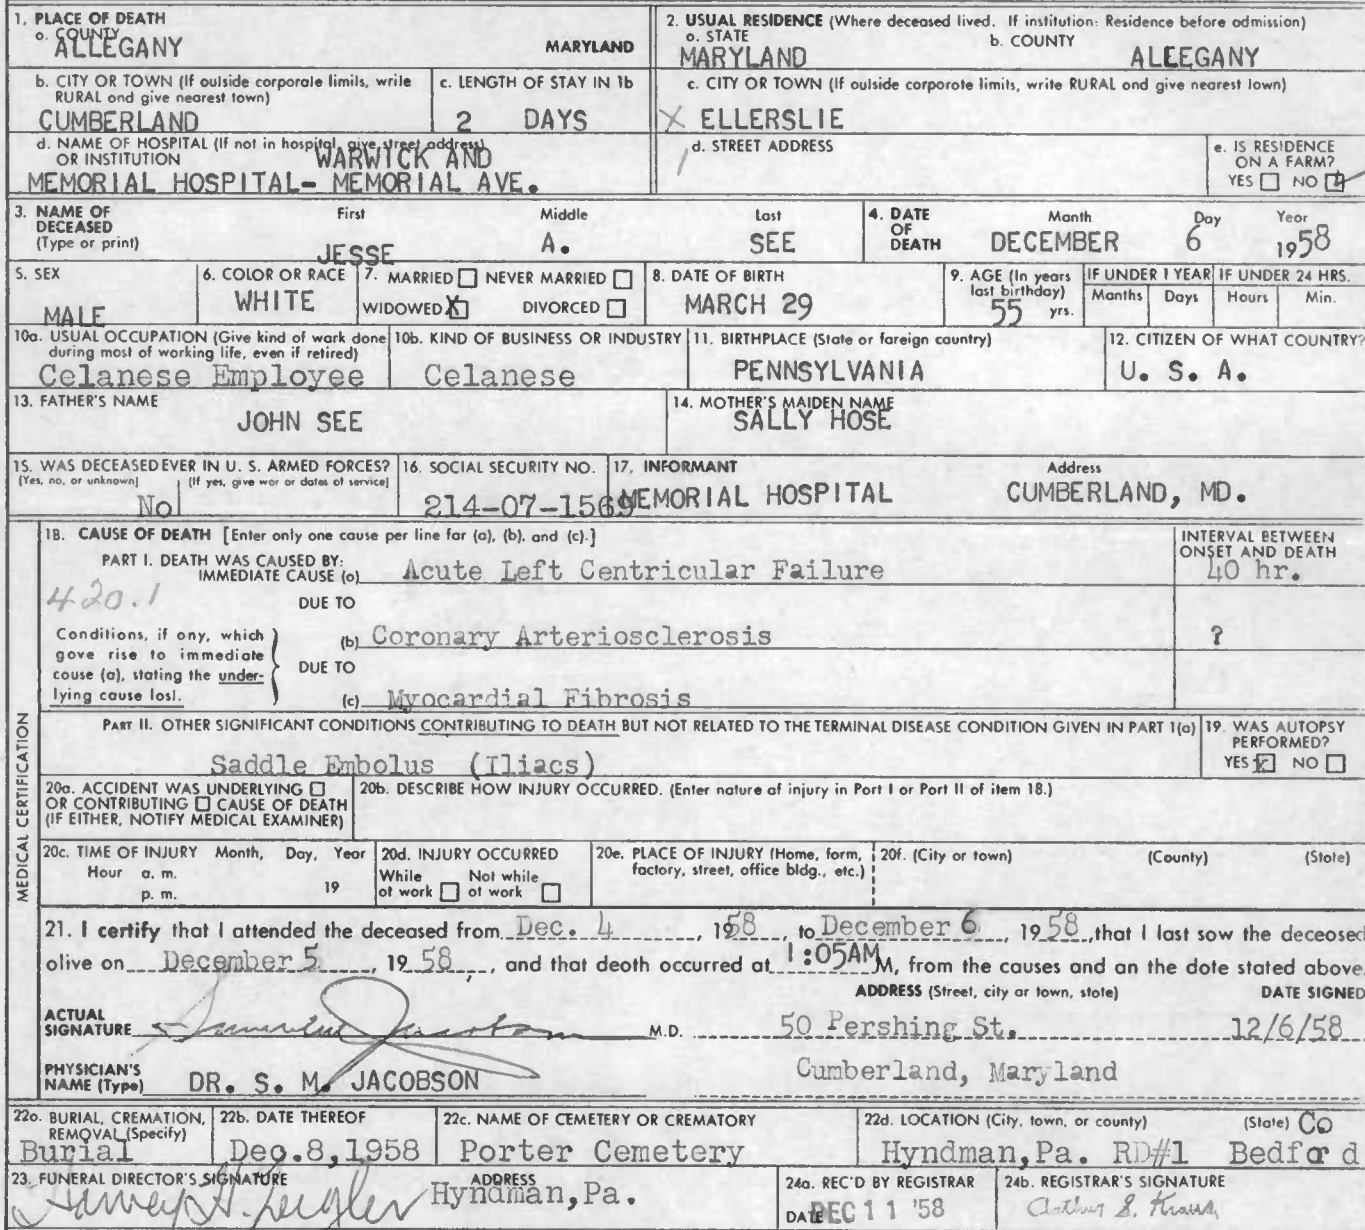 1. PLACE OF DEATH
a. COUNTY
ALLEGANY MARYLAND
2. USUAL RESIDENCE (Where deceased lived. If institution: Residence before admission)
a. STATE b. COUNTY
MARYLAND ALEEGANY
b. CITY OR TOWN (If outside corporate limits, write
RURAL and give nearest town)
CUMBERLAND
c. LENGTH OF STAY IN 1b
2 DAYS
c. CITY OR TOWN (If outside corporate limits, write RURAL and give nearest town)
X ELLERSLIE
d. NAME OF HOSPITAL (If not in hospital, give street address)
OR INSTITUTION WARWICK AND
MEMORIAL HOSPITAL- MEMORIAL AVE.
d. STREET ADDRESS
e. IS RESIDENCE
ON A FARM?
YES NO
3. NAME OF
DECEASED
(Type or print)
First Middle Last
JESSE A. SEE
4. DATE
OF
DEATH
Month Day Year
DECEMBER 6 1958
5. SEX
MALE
6. COLOR OR RACE
WHITE
7. MARRIED NEVER MARRIED
WIDOWED X DIVORCED
8. DATE OF BIRTH
MARCH 29
9. AGE (In years
last birthday)
55 yrs.
IF UNDER 1 YEAR IF UNDER 24 HRS.
Months Days Hours Min.
10a. USUAL OCCUPATION (Give kind of work done
during most of working life, even if retired)
Celanese Employee
10b. KIND OF BUSINESS OR INDUSTRY
Celanese
11. BIRTHPLACE (State or foreign country)
PENNSYLVANIA
12. CITIZEN OF WHAT COUNTRY?
U. S. A.
13. FATHER'S NAME
JOHN SEE
14. MOTHER'S MAIDEN NAME
SALLY HOSE
15. WAS DECEASED EVER IN U. S. ARMED FORCES?
(Yes, no, or unknown) (If yes, give war or dates of service)
No
16. SOCIAL SECURITY NO.
214-07-1569
17. INFORMANT Address
MEMORIAL HOSPITAL CUMBERLAND, MD.
18. CAUSE OF DEATH [Enter only one cause per line for (a), (b), and (c).]
INTERVAL BETWEEN
ONSET AND DEATH
PART I. DEATH WAS CAUSED BY:
IMMEDIATE CAUSE (a) Acute Left Centricular Failure 40 hr.
420.1 DUE TO
Conditions, if any, which
gave rise to immediate
cause (a), stating the under-
lying cause last.
(b) Coronary Arteriosclerosis ?
DUE TO
(c) Myocardial Fibrosis
PART II. OTHER SIGNIFICANT CONDITIONS CONTRIBUTING TO DEATH BUT NOT RELATED TO THE TERMINAL DISEASE CONDITION GIVEN IN PART 1(a)
Saddle Embolus (Iliacs)
19. WAS AUTOPSY
PERFORMED?
YES X NO
MEDICAL CERTIFICATION
20a. ACCIDENT WAS UNDERLYING
OR CONTRIBUTING CAUSE OF DEATH
(IF EITHER, NOTIFY MEDICAL EXAMINER)
20b. DESCRIBE HOW INJURY OCCURRED. (Enter nature of injury in Part I or Part II of item 18.)
20c. TIME OF INJURY Month, Day, Year
Hour a. m.
p. m. 19
20d. INJURY OCCURRED
While Not while
at work at work
20e. PLACE OF INJURY (Home, farm,
factory, street, office bldg., etc.)
20f. (City or town) (County) (State)
21. I certify that I attended the deceased from Dec. 4, 1958, to December 6, 1958, that I last saw the deceased
alive on December 5, 19 58, and that death occurred at 1:05AM M, from the causes and an the date stated above.
ADDRESS (Street, city or town, state) DATE SIGNED
ACTUAL
SIGNATURE Samuel Jacobson M.D. 50 Pershing St. 12/6/58
PHYSICIAN'S
NAME (Type) DR. S. M. JACOBSON Cumberland, Maryland
22a. BURIAL, CREMATION,
REMOVAL (Specify)
Burial
22b. DATE THEREOF
Dec.8,1958
22c. NAME OF CEMETERY OR CREMATORY
Porter Cemetery
22d. LOCATION (City, town, or county) (State) Co
Hyndman,Pa. RD#1 Bedford
23. FUNERAL DIRECTOR'S SIGNATURE ADDRESS
Harvey H. Zeigler Hyndman,Pa.
24a. REC'D BY REGISTRAR
DATE DEC 11 '58
24b. REGISTRAR'S SIGNATURE
Arthur S. Kraus